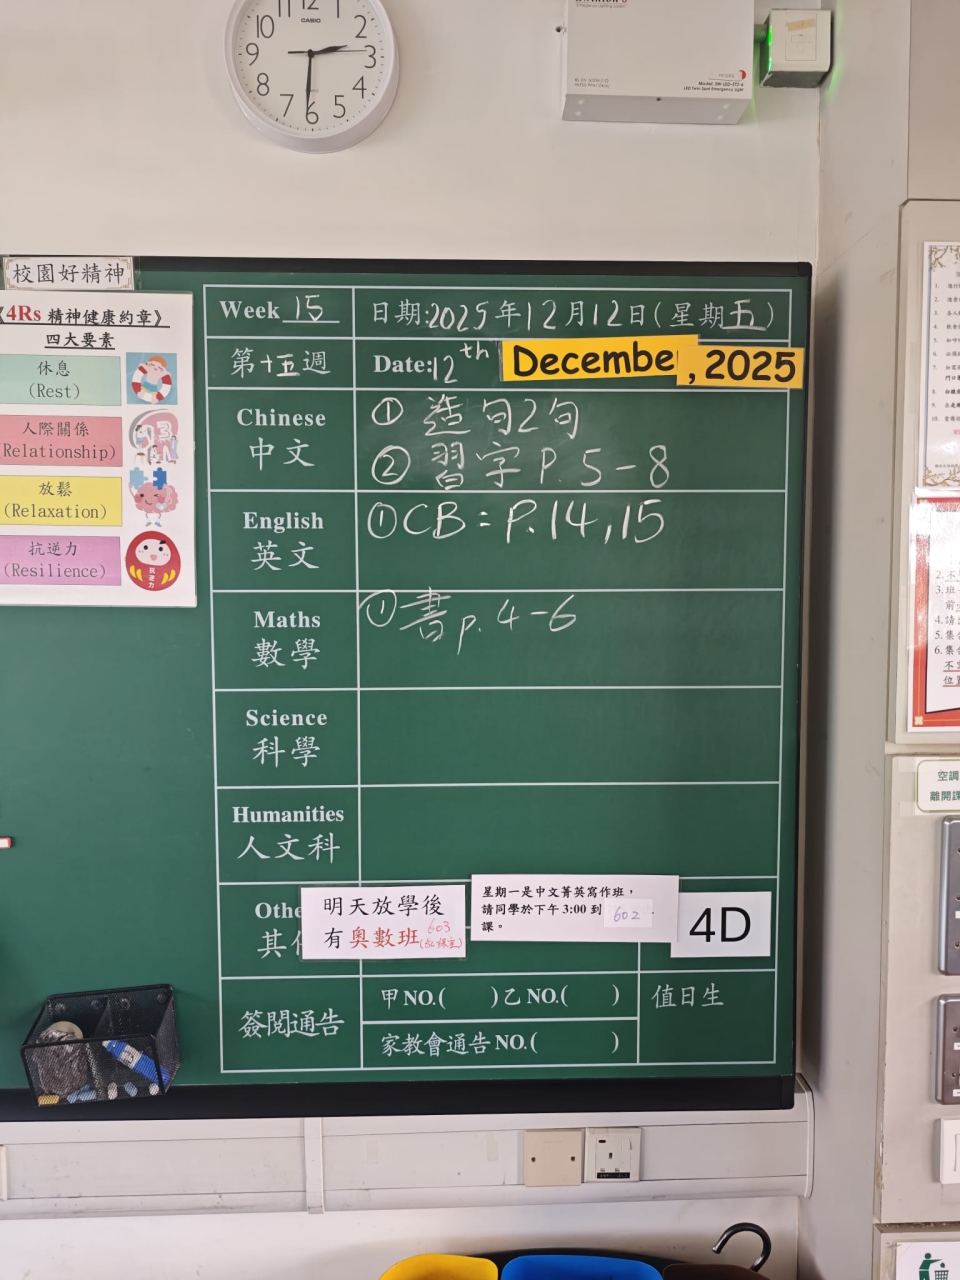 12
2
3
4
5
6
7
8
9
10
CASIO
Emergency Lighting System
Model: SW-LED-ET2-6
LED Twin Spot Emergency Light
校園好精神
《4Rs 精神健康約章》
四大要素
休息
(Rest)
人際關係
(Relationship)
放鬆
(Relaxation)
抗逆力
(Resilience)
抗逆力
Week 15
日期:2025年12月12日(星期五)
第十五週
Date:12th December, 2025
Chinese
中文
① 造句2句
② 習字 P.5-8
English
英文
①CB: P.14,15
Maths
數學
①書p.4-6
Science
科學
Humanities
人文科
Othe
其
明天放學後
有奧數班 603
星期一是中文菁英寫作班，
請同學於下午 3:00 到 602
課。
4D
簽閱通告
甲NO.( )乙NO.( )
值日生
家教會通告NO.( )
空調
離開課